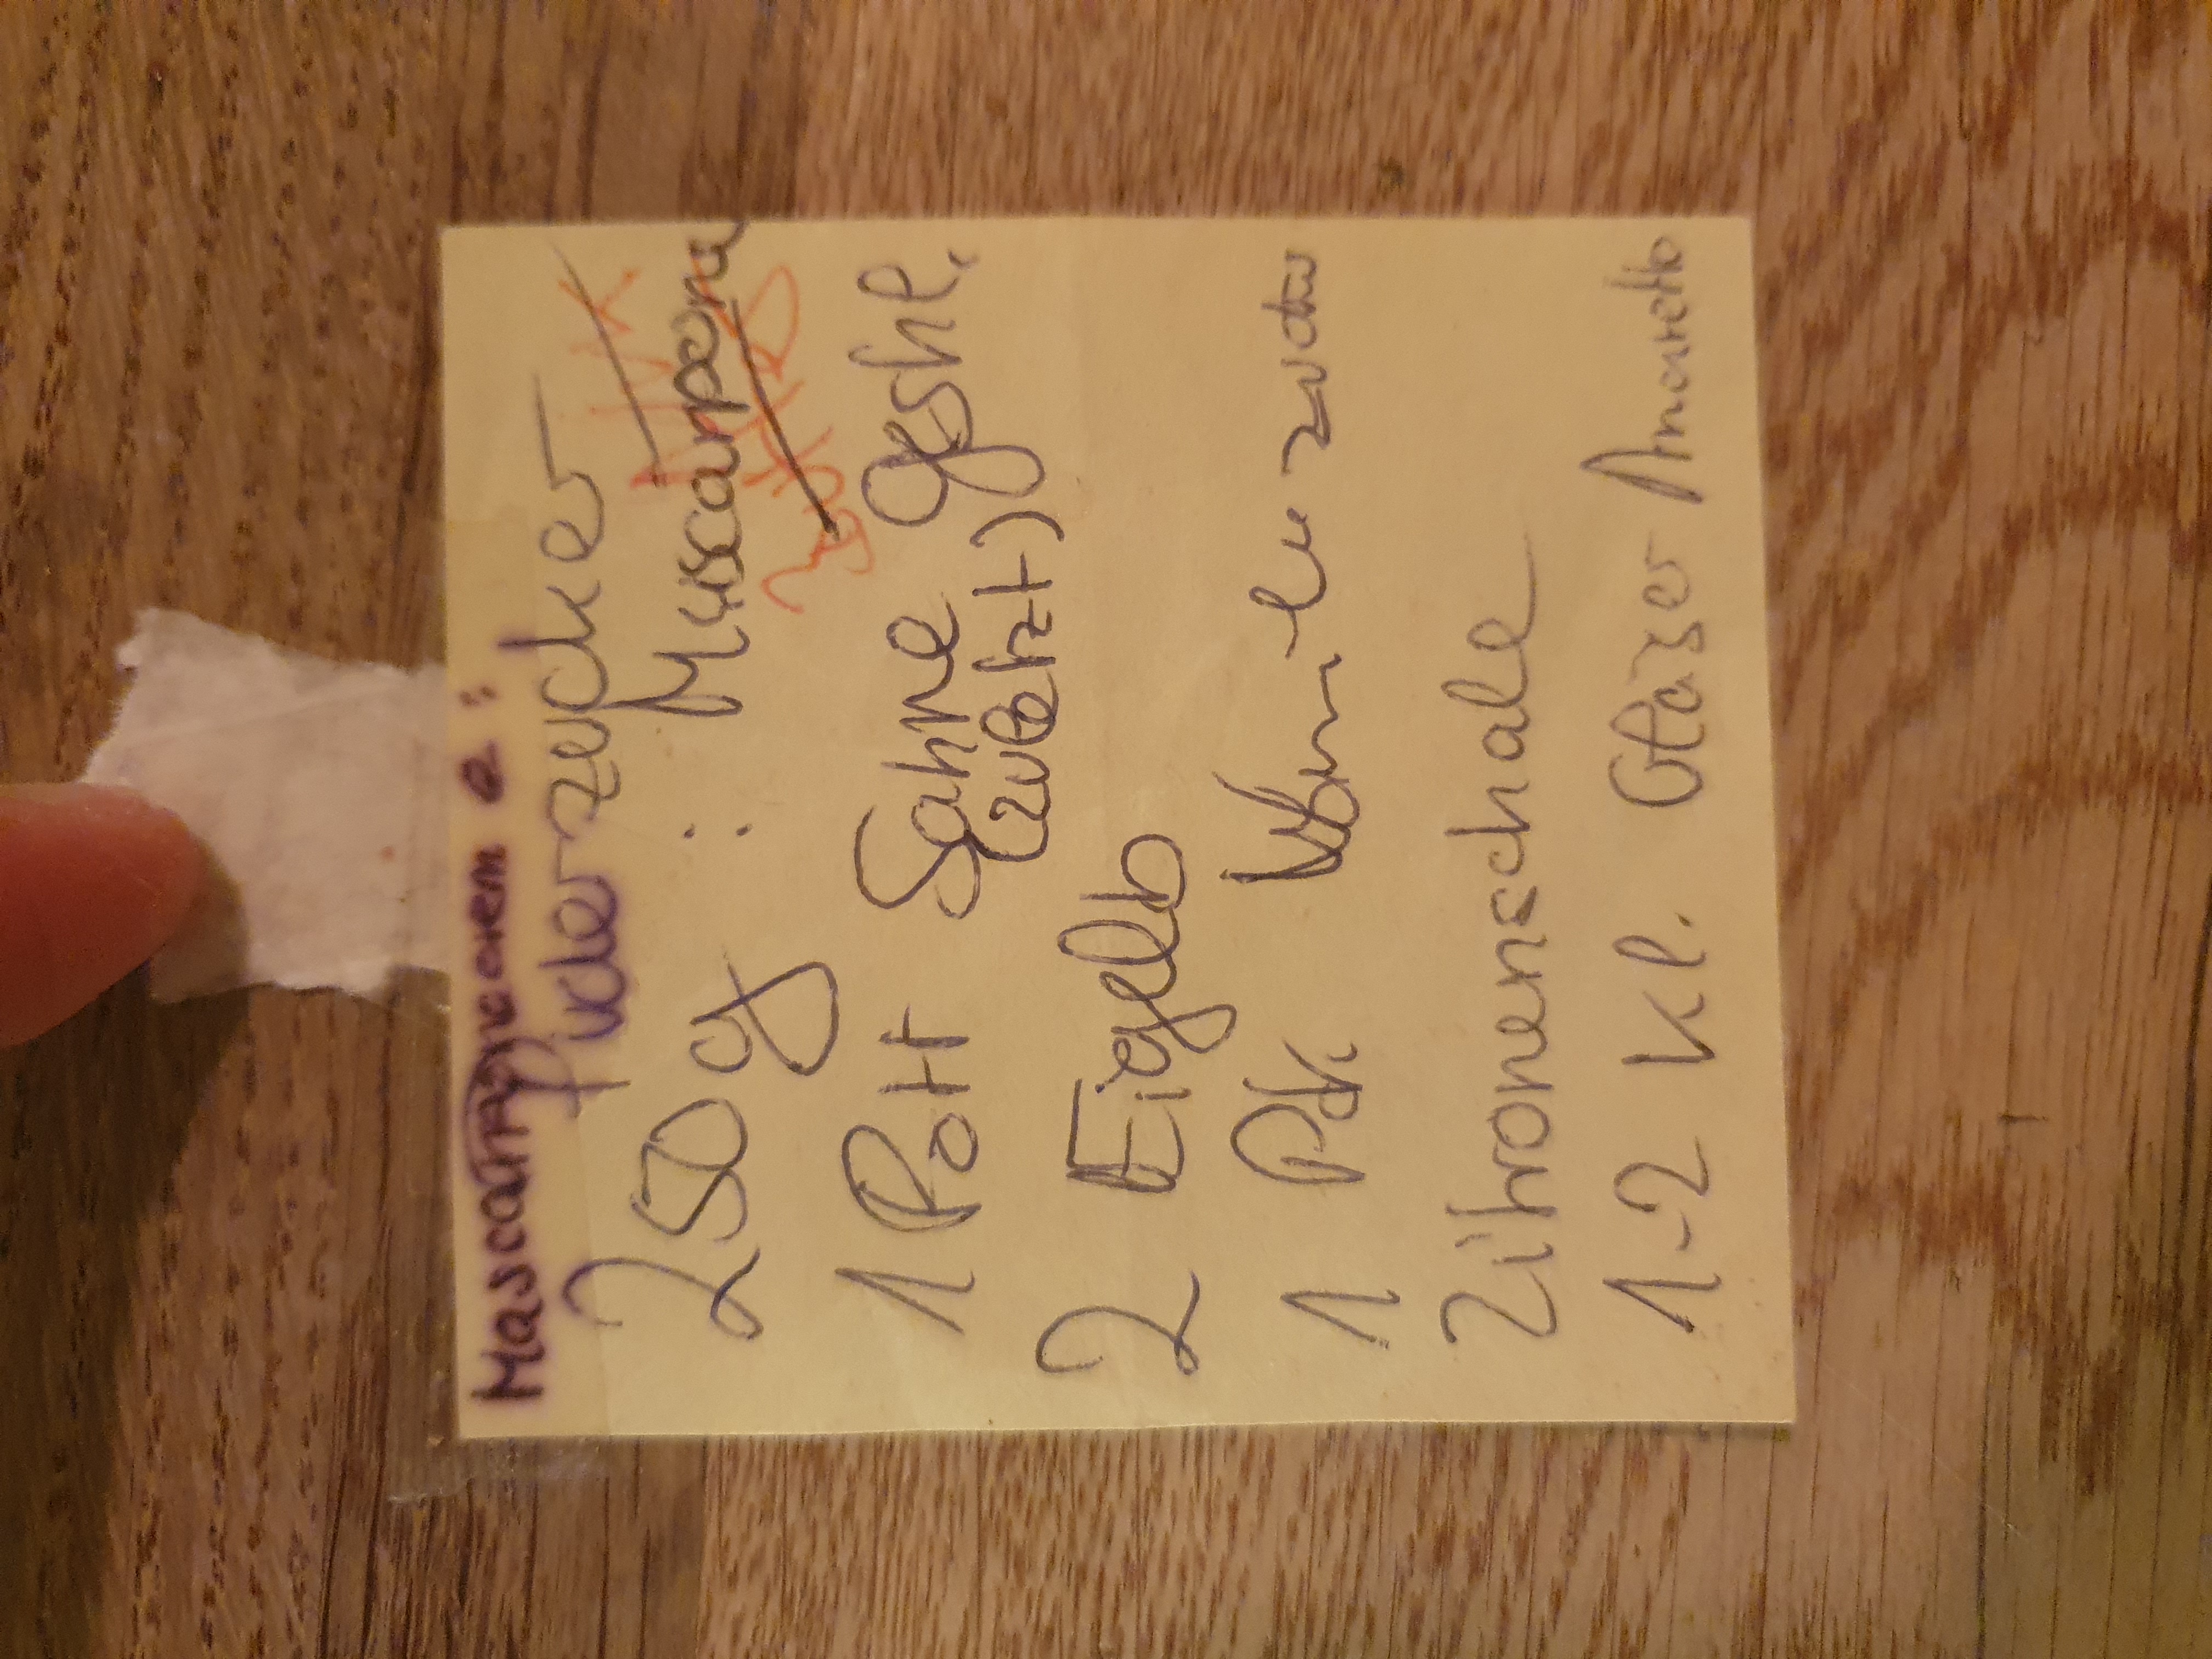 Mascarponecrem e :
Puderzucker
250g : Mascarpone
1 Pott Sahne geshl.
(zuletzt)
2 Eigelb
1 Pck. Vanillezucker
Zitronenschale
1-2 Kl. Gläser Amaretto